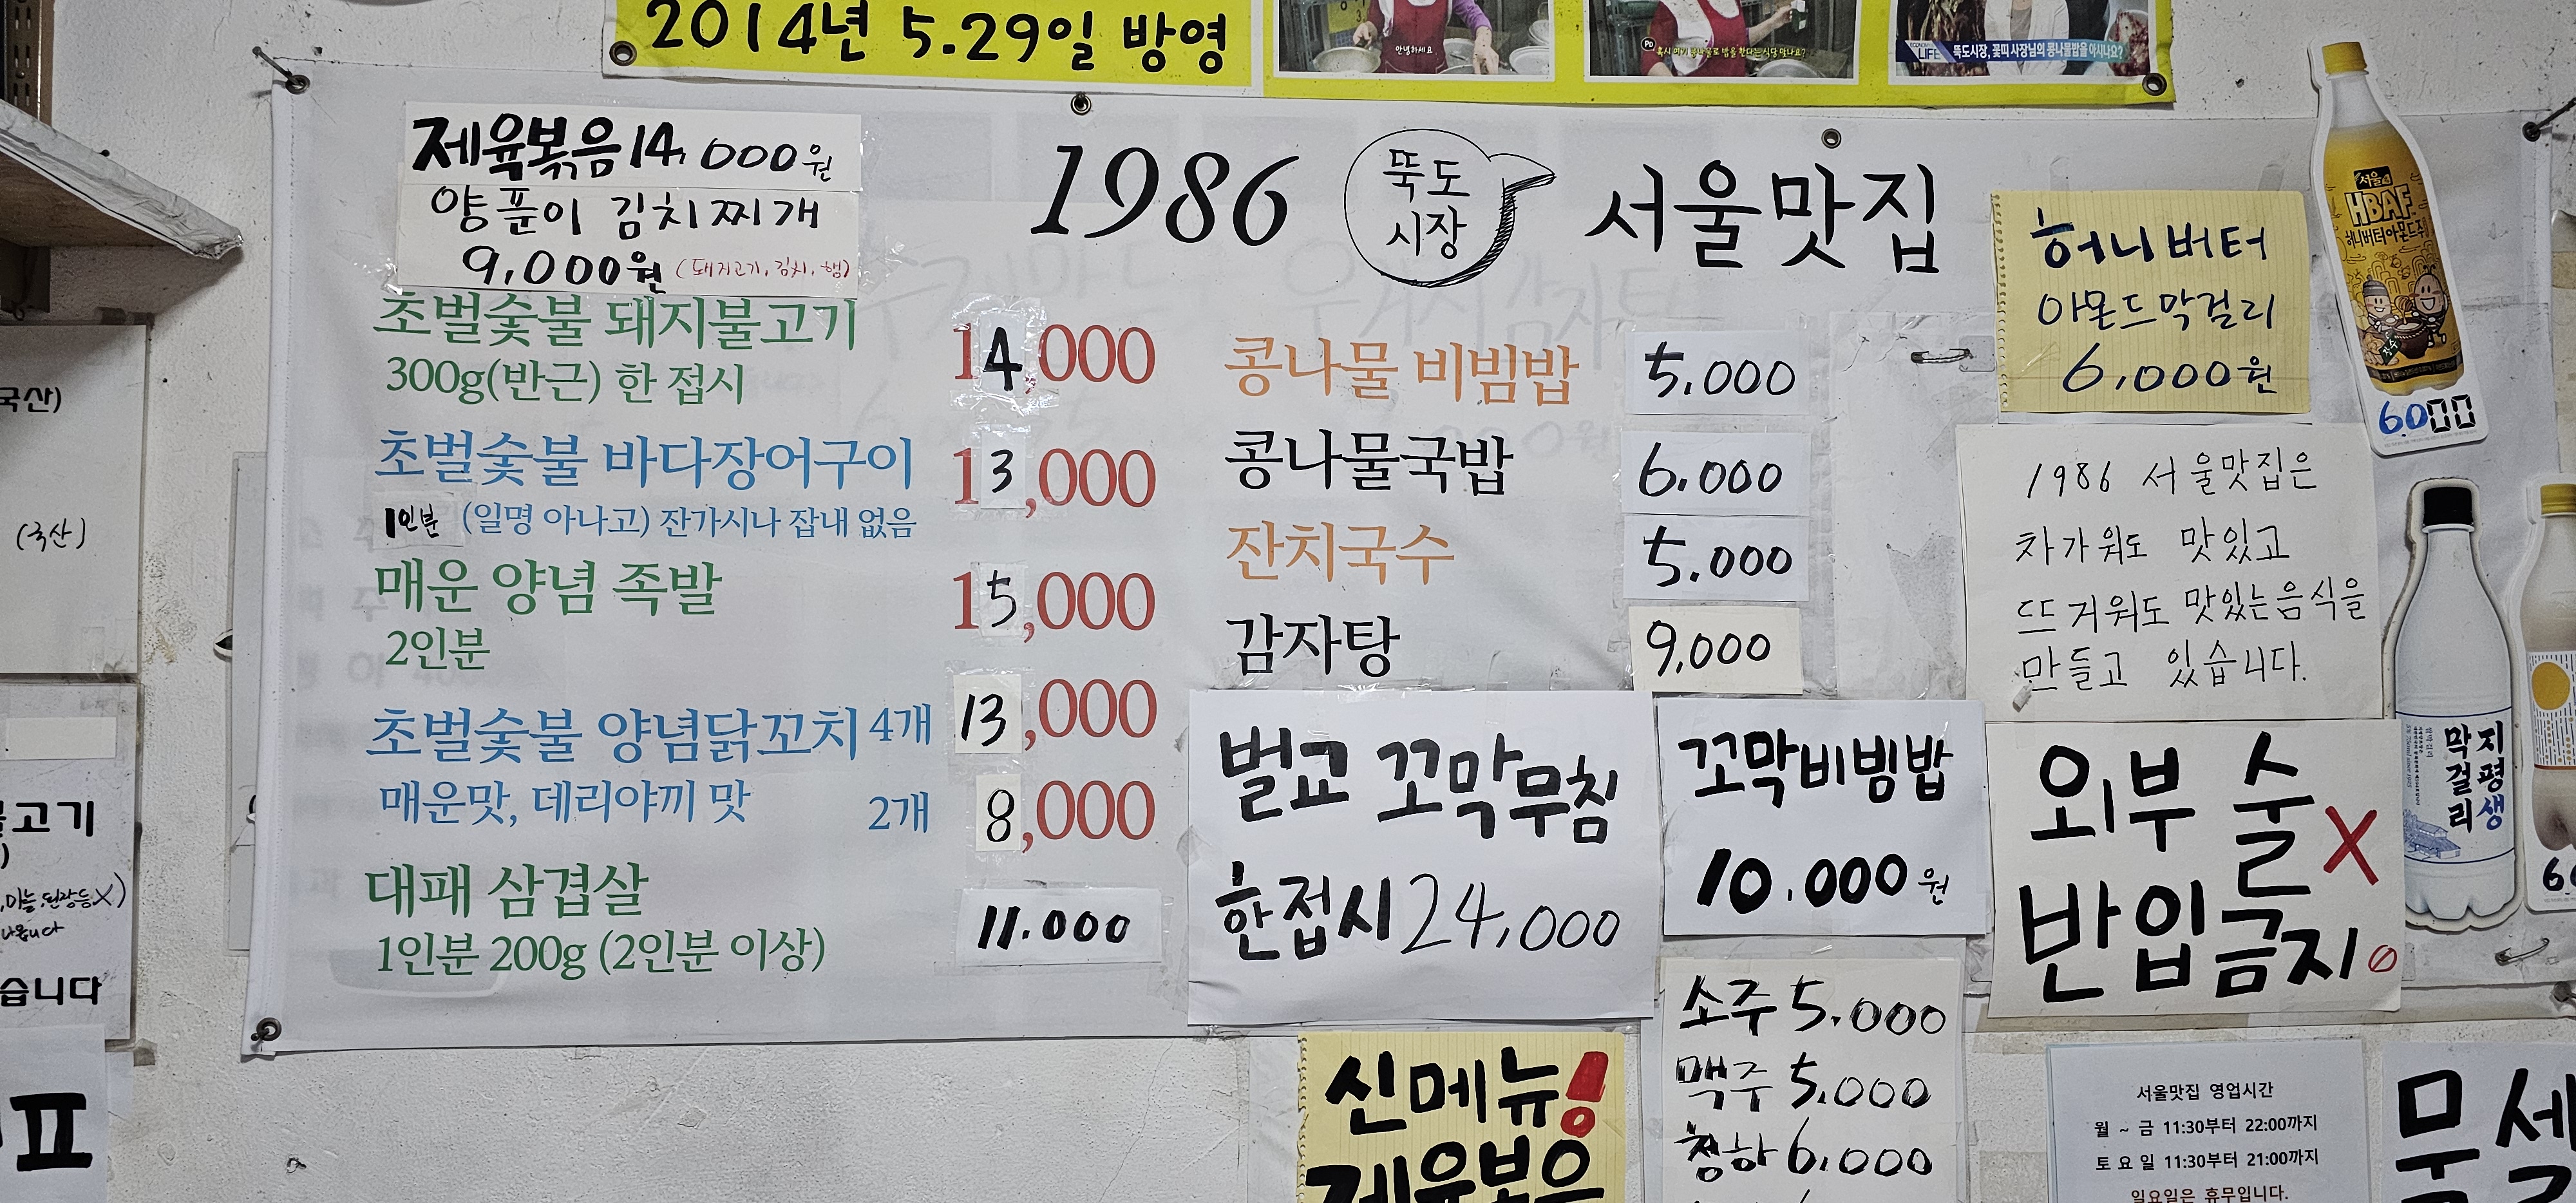 2014년 5.29일 방영
안녕하세요
PD
뚝도시장, 꽃띠 사장님의 콩나물밥을 아시나요?
제육볶음 14,000원
양푼이 김치찌개
9,000원 (돼지고기, 김치, 햄)
1986 뚝도시장 서울맛집
초벌숯불 돼지불고기 14,000
300g(반근) 한 접시
초벌숯불 바다장어구이 13,000
1인분 (일명 아나고) 잔가시나 잡내 없음
매운 양념 족발 15,000
2인분
초벌숯불 양념닭꼬치 4개 13,000
매운맛, 데리야끼 맛 2개 8,000
대패 삼겹살 11.000
1인분 200g (2인분 이상)
콩나물 비빔밥 5,000
콩나물국밥 6.000
잔치국수 5.000
감자탕 9,000
벌교 꼬막무침
한접시 24,000
꼬막비빔밥
10.000원
소주 5.000
맥주 5.000
청하 6.000
신메뉴!
제육볶음
허니버터
아몬드막걸리
6,000원
서울
HBAF
허니버터아몬드주
6000
1986 서울맛집은
차가워도 맛있고
뜨거워도 맛있는음식을
만들고 있습니다.
외부 술 X
반입금지
지평생
막걸리
서울맛집 영업시간
월 ~ 금 11:30부터 22:00까지
토요일 11:30부터 21:00까지
일요일은 휴무입니다.
국산)
(국산)
불고기
습니다